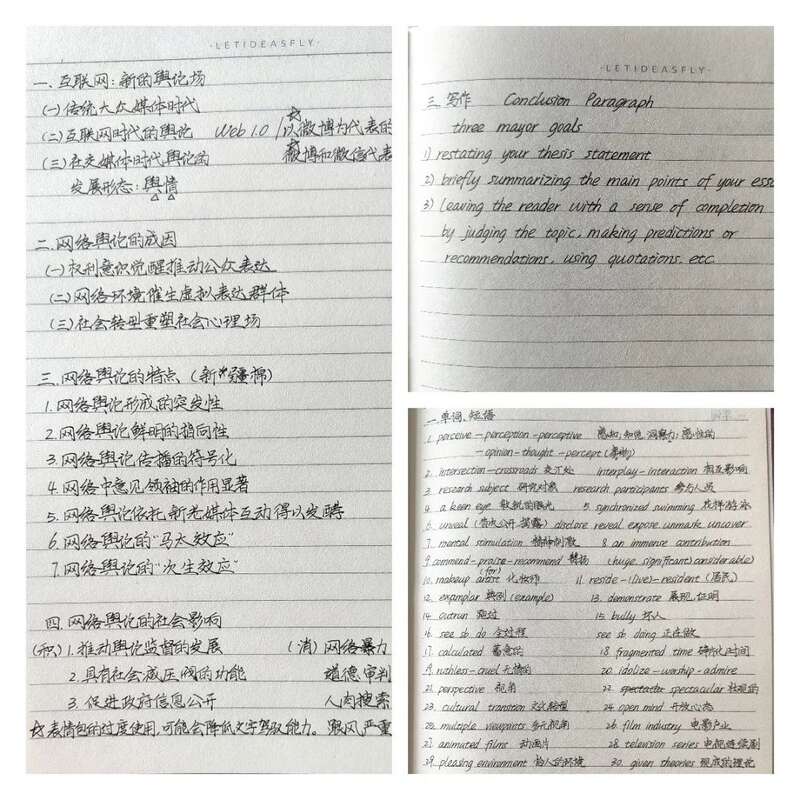 ·LETIDEASFLY·
一、互联网:新的舆论场
(一)传统大众媒体时代
(二)互联网时代的舆论 Web 1.0 / 以微博为代表的
(三)社交媒体时代舆论的 微博和微信代表
发展形态:舆情
二.网络舆论的成因
(一)权利意识觉醒推动公众表达
(二)网络环境催生虚拟表达群体
(三)社会转型重塑社会心理场
三.网络舆论的特点(新
1.网络舆论形成的突发性
2.网络舆论鲜明的指向性
3.网络舆论传播的符号化
4.网络中意见领袖的作用显著
5.网络舆论依托新老媒体互动得以发酵
6.网络舆论的"马太效应"
7.网络舆论的"次生效应"
四.网络舆论的社会影响
(积)1.推动舆论监督的发展 (消)网络暴力
2.具有社会减压阀的功能 道德审判
3.促进政府信息公开 人肉搜索
☆表情包的过度使用,可能会降低文字驾驭能力。 跟风严重
·LETIDEASFLY·
三.写作 Conclusion Paragraph
three mayor goals
1) restating your thesis statement
2) briefly summarizing the main points of your ess
3) leaving the reader with a sense of completion
by judging the topic, making predictions or
recommendations, using quotations. etc
一.单词、短语
1. perceive - perception - perceptive 感知,知觉,洞察力,感性的
- opinion - thought - percept
2. intersection - crossroads 交汇处 interplay - interaction 相互影响
3. research subject 研究对象 research participants 参与人员
4. a keen eye 敏锐的眼光 5. synchronized swimming 花样游泳
6. unveal disclose reveal expose unmark uncover
7. mental stimulation 精神刺激 8. an immense contribution
9. commend - praise - recommend 赞扬 (huge. significant) considerable)
(for)
10. makeup artist 化妆师 11. reside - (live) - resident (居民)
12. exampler 典例 (example) 13. demonstrate 展现,证明
14. outrun 跑过 15. bully 坏人
16. see sb. do 全过程 see sb. doing 正在做
17. calculated 蓄意的 18. fragmented time 碎片化时间
19. ruthless - cruel 无情的 20. idolize - worship - admire
21. perspective 视角 22. spectacular 壮观的
23. cultural transition 文化转型 24. open mind 开放心态
25. multiple viewpoints 多元视角 26. film industry 电影产业
27. animated films 动画片 28. television series 电视连续剧
29. pleasing environment 怡人的环境 30. given theories 现成的理论